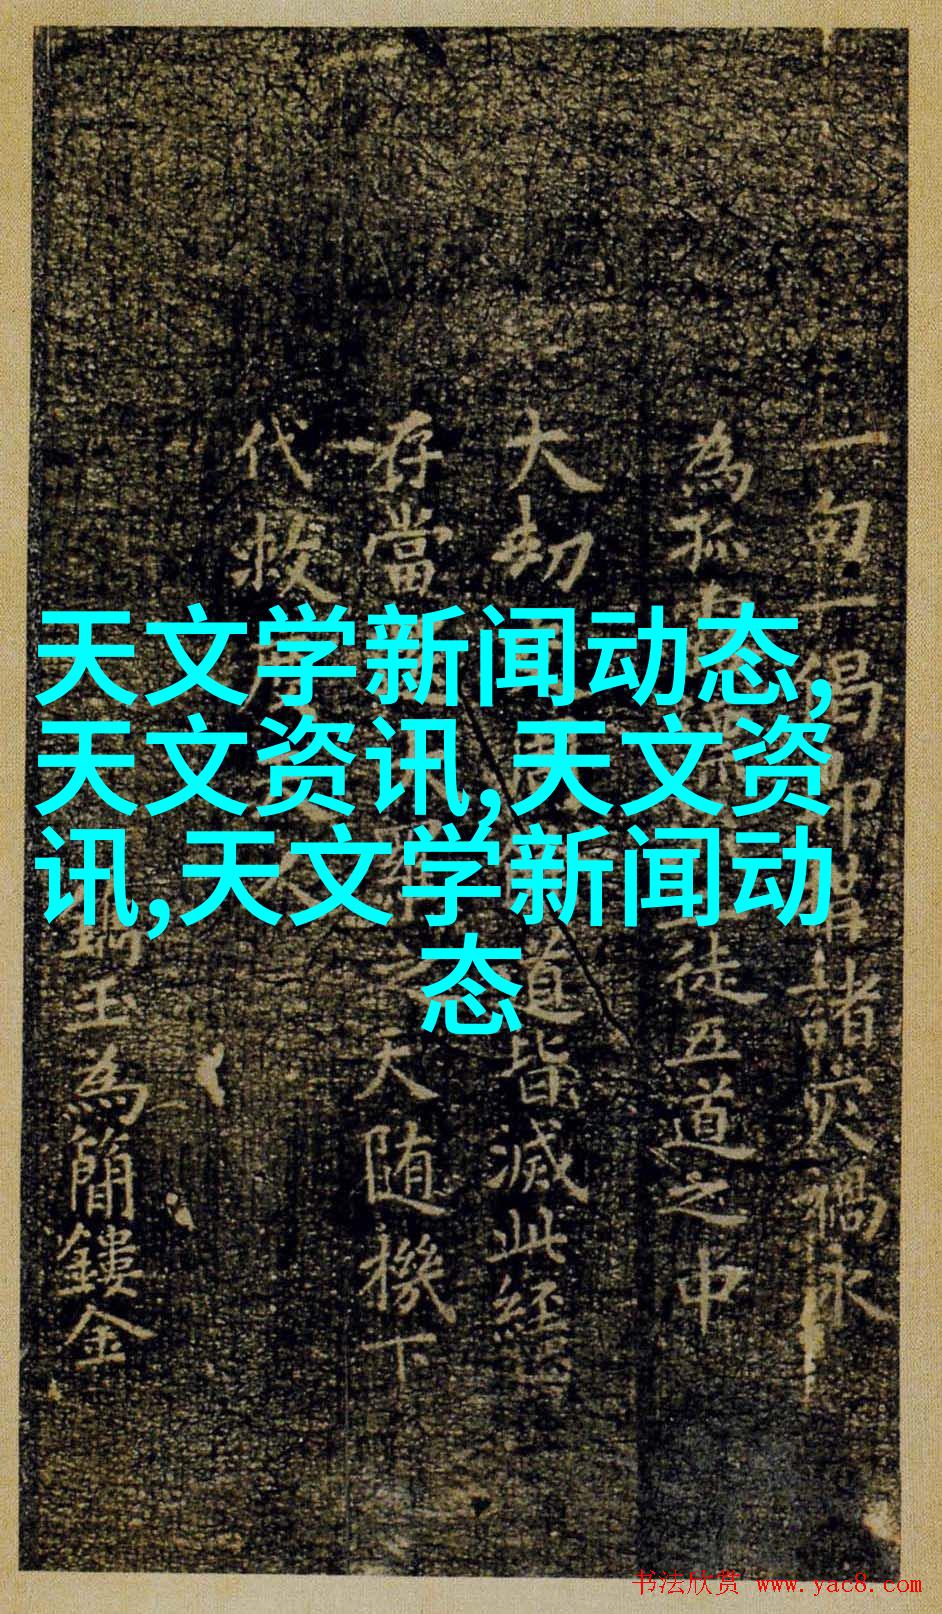 天文学新闻动态,
天文资讯,天文资
讯,天文学新闻动
态
一句一偈即
諸灾禍永
為孤
徒五道之中
大劫
道皆滅此經
存當
之天随機下
代救
玉為簡鏤金
书法欣赏 www.yac8.com